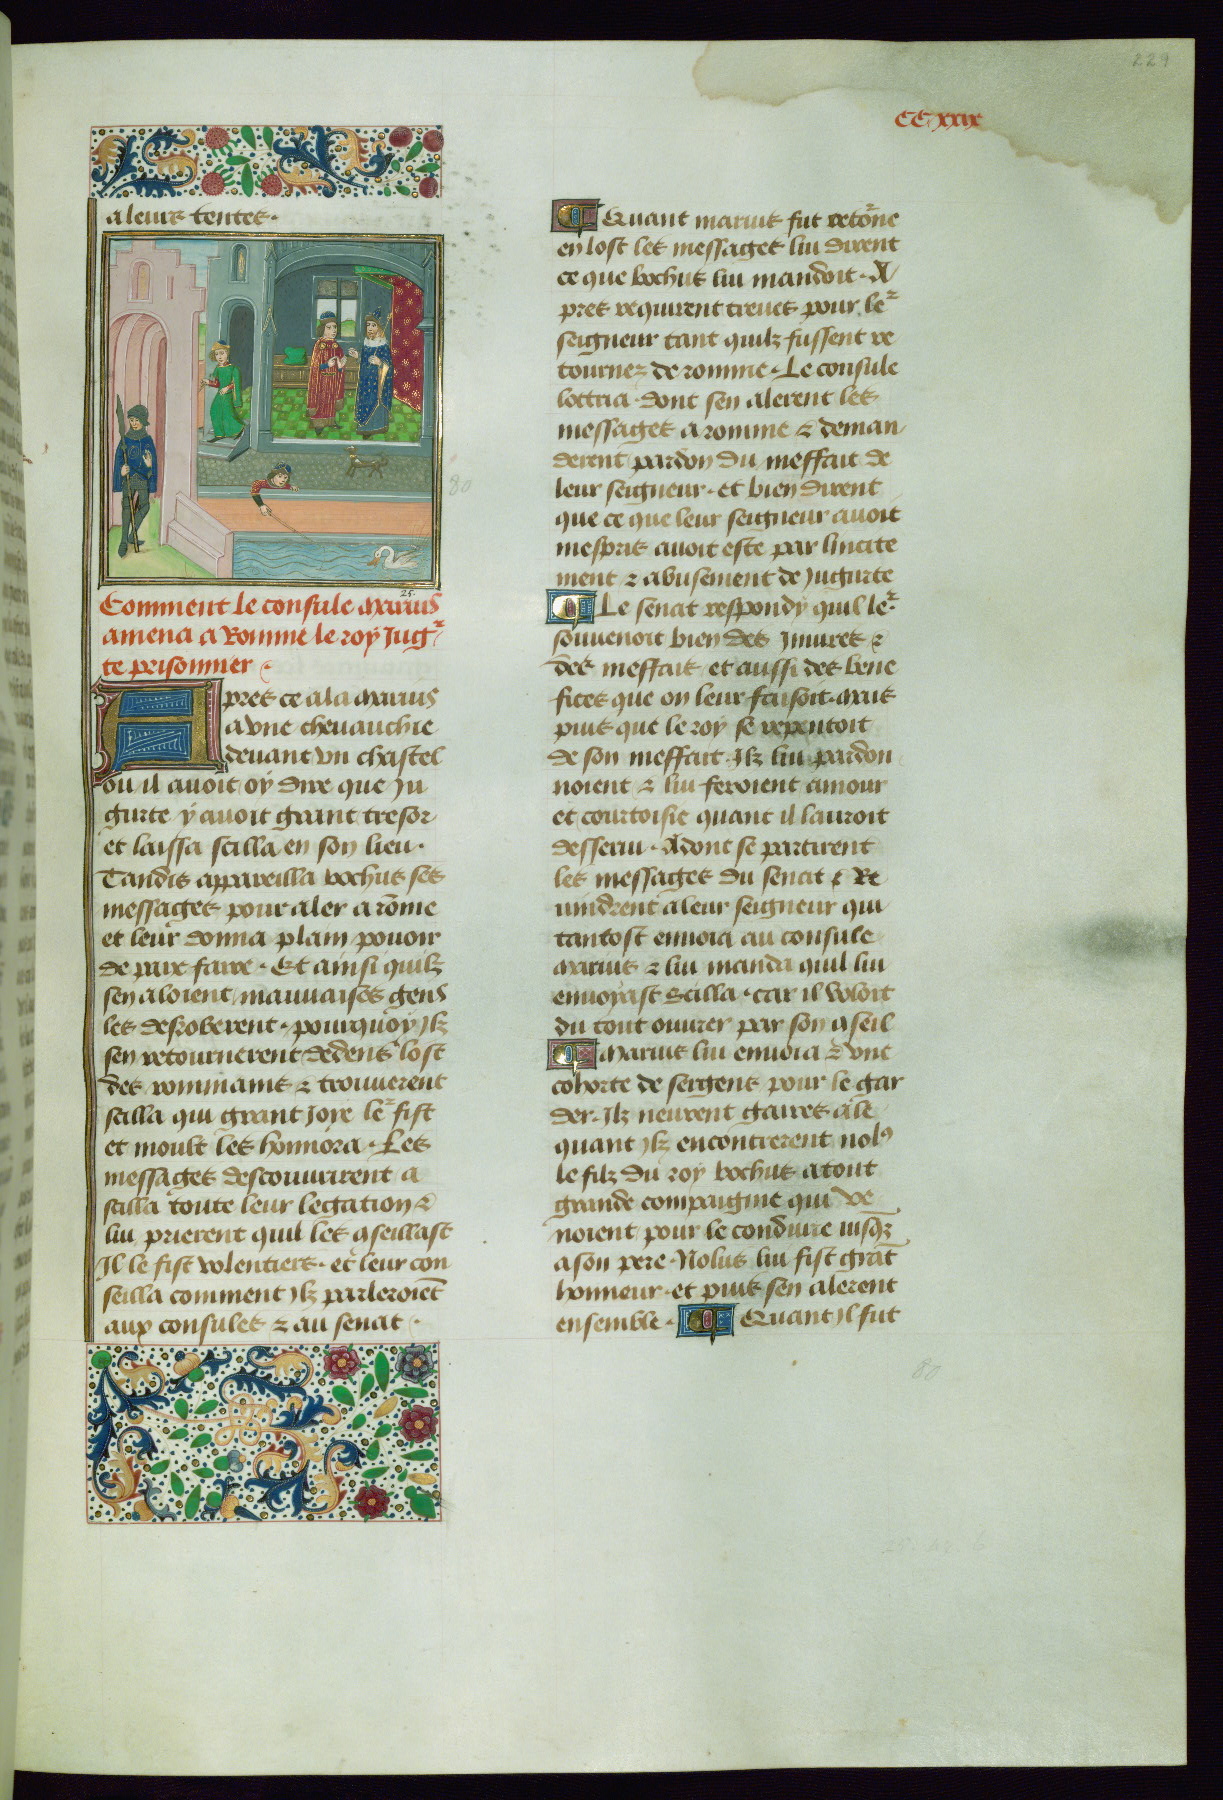 229
CCxxix
a leurs tentes.
25.
Comment le consule Marius
amena a Romme le roy Jug
te prisonnier
Apres ce ala Marius
a vne cheuauchie
deuant vn chastel
ou il auoit oy dire que Ju
gurte y auoit grant tresor
et laissa scilla en son lieu.
Tandis appareilla bochus ses
messages pour aler a rōme
et leur donna plain pouoir
de paix faire. Et ainsi quilz
sen aloient mauuaises gens
les desroberent. pourquoy Ilz
sen retournerent dedens lost
des rommains & trouuerent
scilla qui grant Joye le~ fist
et moult les honnora. Les
messages descouurirent a
scilla toute leur legation &
lui prierent quil les ꝯseillast
Il le fist volentiers. et leur con
seilla comment Ilz parleroiēt
aux consules & au senat.
80
Quant marius fut retō~ne
en lost les messages lui dirent
ce que bochus lui mandoit. A
pres requirent treues pour le~
seigneur tant quilz fussent re
tournez de romme. Le consule
lottria. dont sen alerent les
messages a romme & deman
derent pardon du meffait de
leur seigneur. et bien dirent
que ce que leur seigneur auoit
mespris auoit este par lincite
ment & abusement de Jugurte
Le senat respondy quil le~
souuenoit bien des Iniures &
des meffais et aussi des bene
fices que on leur faisoit. mais
puis que le roy se repentoit
de son meffait. Ilz lui pardon
noient & lui feroient amour
et courtoisie quant il lauroit
desserui. Adont se partirent
les messages du senat & Re
uindrent a leur seigneur qui
tantost enuoia au consule
Marius & lui manda quil lui
enuoyast Scilla. car il voloit
du tout ouurer par son ꝯseil
Marius lui enuoia & vne
cohorte de sergens pour le gar
der. Ilz neurent gaires ale
quant Ilz encontrerent nolꝰ
le filz du roy bochus a tout
grande compaignie qui ve
noient pour le conduire iusqz
a son pere. Nolus lui fist grāt
honneur. et puis sen alerent
ensemble. Quant Il fut
80